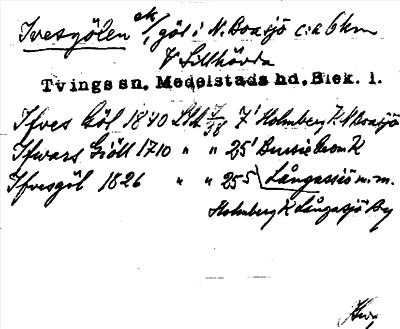 Ivesgölen ek/, göl i N. Boasjö c:a 6 km
V Lillhövda
Tvings sn. Medelstads hd. Blek. l.
Ifves Göl 1840 Lbk 7/38 7' Holmberg K. N. Boasjö
Ifwars Giöll 1710 " " 25' K
Ifvesgöl 1826 " " 25 5 Långassiö m.m.
Holmberg K Långasjö By